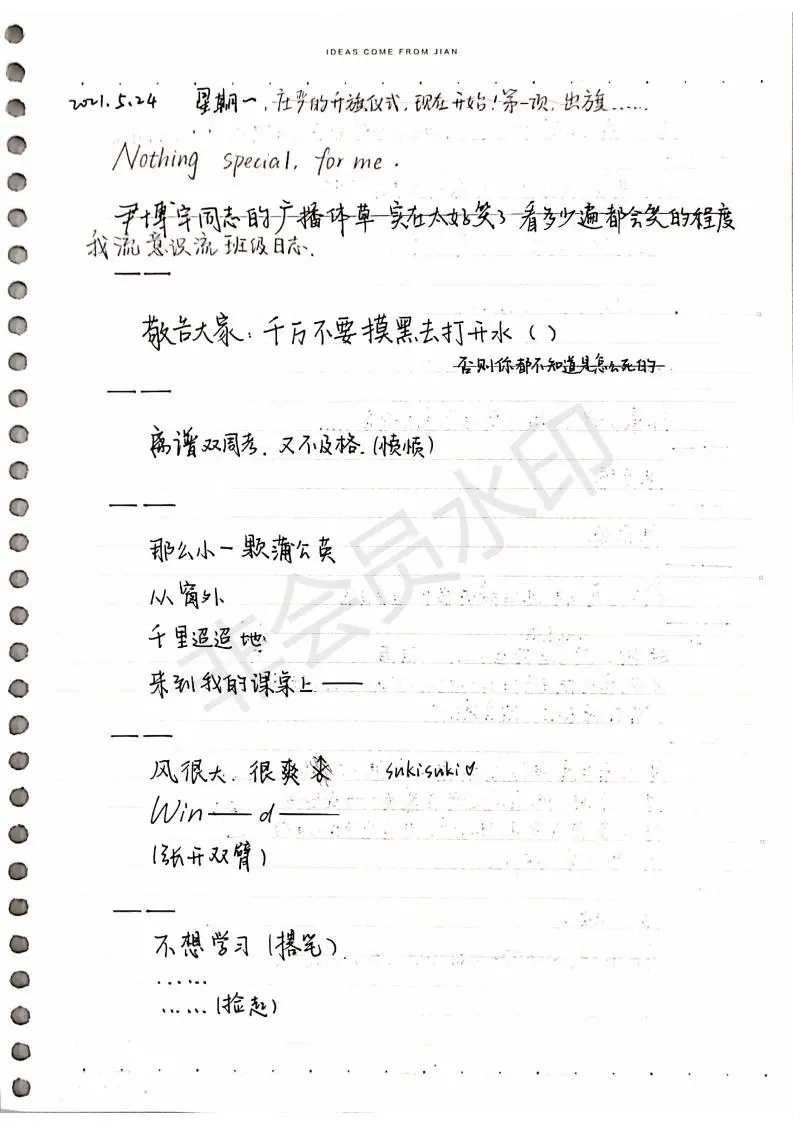 IDEAS COME FROM JIAN
2021.5.24 星期一，庄严的升旗仪式，现在开始！第一项，出旗……
Nothing special, for me.
尹博宇同志的广播体草 实在太好笑了 看多少遍都会笑的程度
我流意识流班级日志.
——
敬告大家：千万不要摸黑去打开水（）
否则你都不知道是怎么死的
——
离谱双周考，又不及格.(愤愤)
——
那么小一颗蒲公英
从窗外
千里迢迢地
来到我的课桌上——
——
风很大，很爽 sukisuki♡
Win——d——
(张开双臂)
——
不想学习(撂笔)
……
……(捡起)
非会员水印